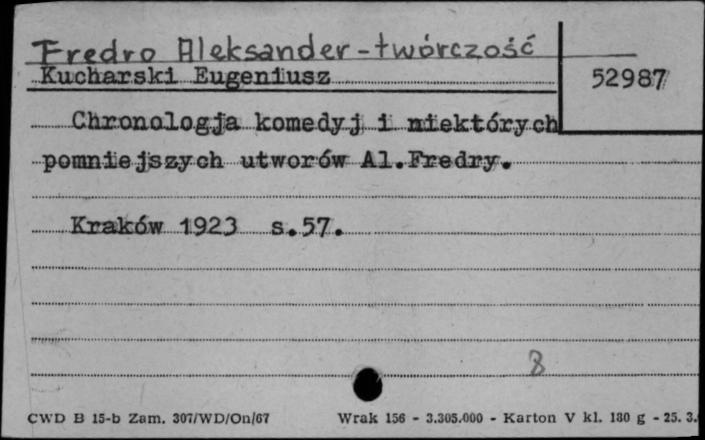 Fredro Aleksander - twórczość
Kucharski Eugeniusz
52987
Chronologja komedyj i niektórych
pomniejszych utworów Al.Fredry.
Kraków 1923 s.57.
8
CWD B 15-b Zam. 307/WD/On/67 Wrak 156 - 3.305.000 - Karton V kl. 180 g - 25. 3.